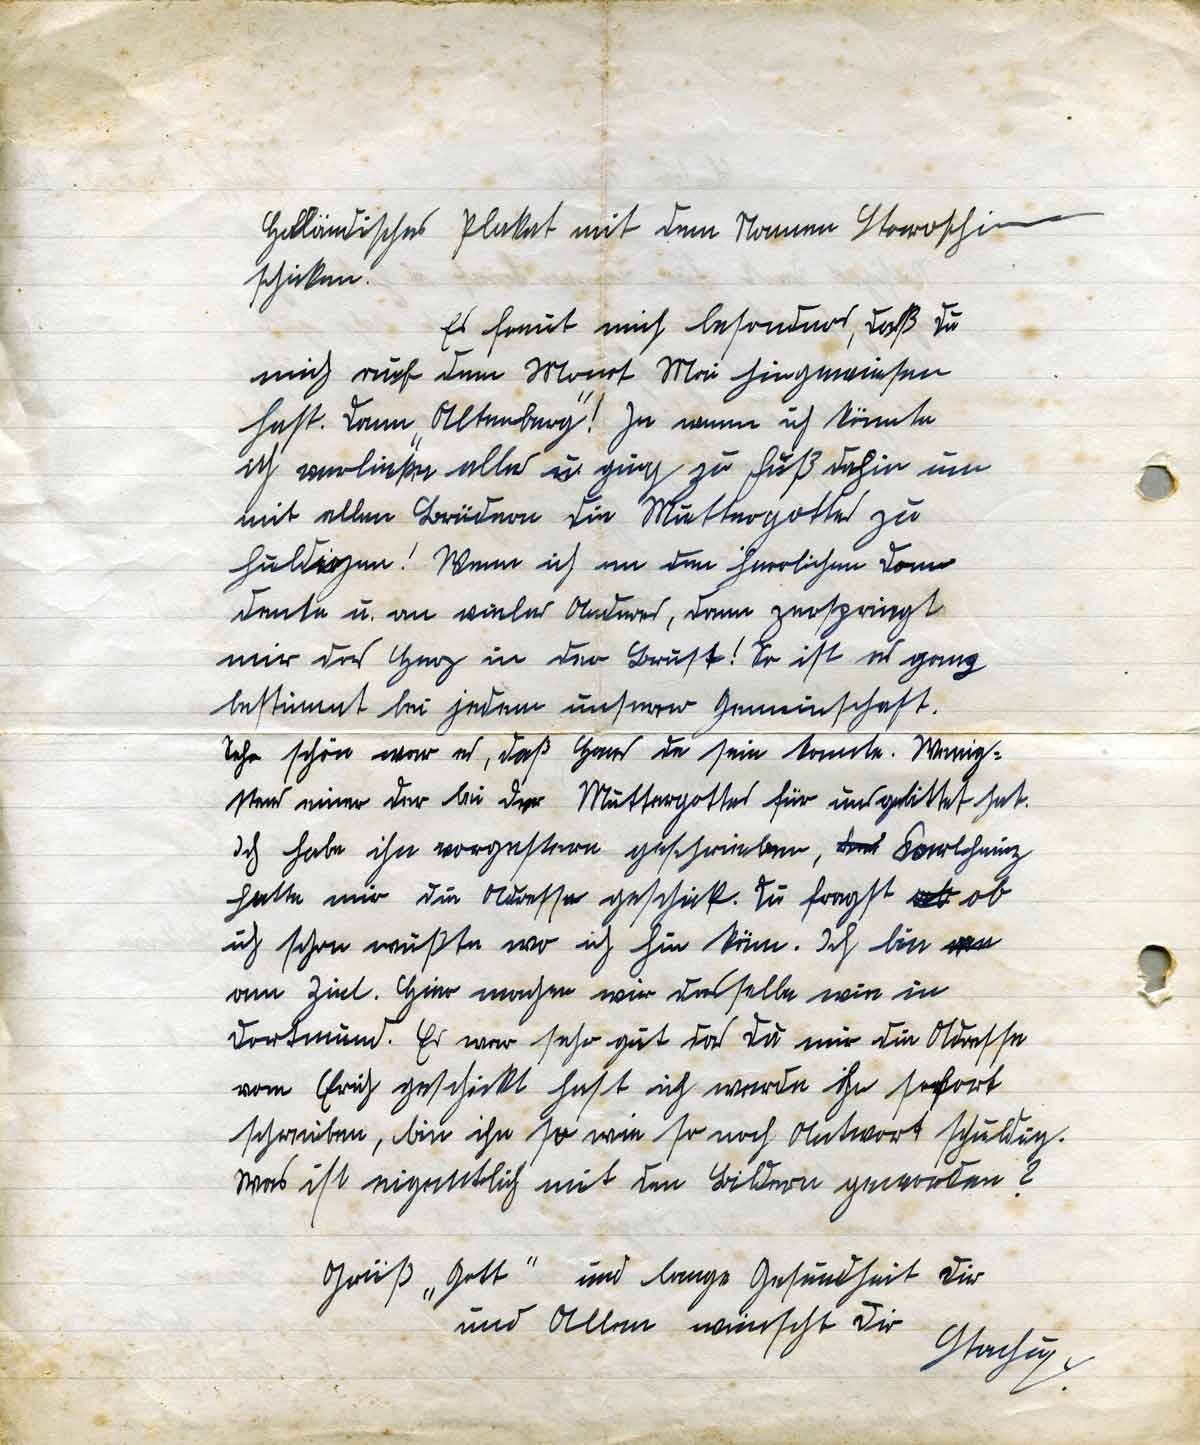 Holländisches Plakat mit dem Namen Staroschin
schicken.
Es freut mich besonders, daß Du
mich auf dem Monat Mai hingewiesen
hast. Dann „Altenberg"! Ja wenn ich könnte
ich verließe alles u. ging zu Fuß dahin um
mit allen Brüdern die Muttergottes zu
huldigen! Wenn ich an den herrlichen Dom
denke u. an vieles Anderes, dann zerspringt
mir das Herz in der Brust! So ist es ganz
bestimmt bei jedem unserer Gemeinschaft.
Sehr schön war es, daß Hans da sein konnte. Wenig-
stens einer der bei der Muttergottes für uns gebittet hat.
Ich habe ihn vorgestern geschrieben, Karlheinz
hatte mir die Adresse geschick. Du fragst ob
ich schon wüßte wo ich hin käm. Ich bin
am Ziel. Hier machen wir dasselbe wie in
Dortmund. Es war sehr gut das Du mir die Adresse
vom Erich geschickt hast ich werde ihn sofort
schreiben, bin ihn so wie so noch Antwort schuldig.
Was ist eigentlich mit den Bildern geworden?
Grüß „Gott" und lange Gesundheit Dir
und Allen wünscht Dir